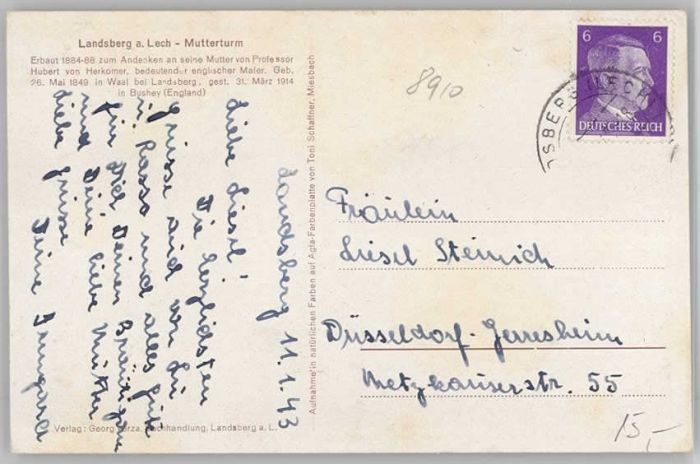 Landsberg a. Lech - Mutterturm
Erbaut 1884-88 zum Andenken an seine Mutter von Professor
Hubert von Herkomer, bedeutender englischer Maler. Geb.
26. Mai 1849 in Waal bei Landsberg, gest. 31. März 1914
in Bushey (England)
8910
6 6
DEUTSCHES REICH
Landsberg 11.1.43
Liebe Liesel!
Die herzlichsten
Grüsse sind von Lu
u. Rasso und alles Gute
für Dich Deinen Bräutigam
und Deine liebe Mutter
Liebe Grüsse
Deine Irmgard
Aufnahme in natürlichen Farben auf Agfa-Farbenplatte von Toni Schaffner, Miesbach
Fräulein
Liesel Steinich
Düsseldorf-Gerresheim
Metzkauserstr. 55
15,-
Verlag: Georg Buchhandlung, Landsberg a. L.